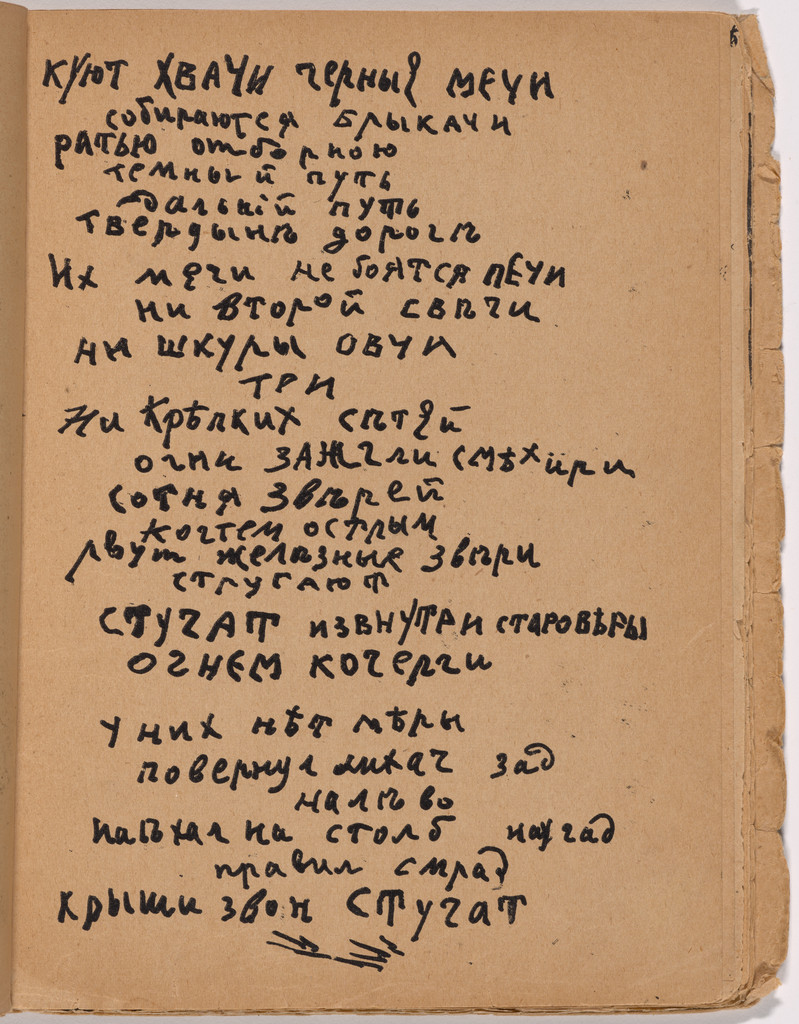 куют хвачи черные мечи
собираются брыкачи
ратью отборною
темный путь
дальнiй путь
твердынѣ дорогѣ
Их мечи не боятся печи
ни второй свѣчи
ни шкуры овчи
три
Ни крѣпких сѣтей
огни зажгли смѣхири
сотня звѣрей
когтем острым
рвут желѣзные звѣри
стругают
стучат извнутри старовѣры
огнем кочерги
у них нѣт мѣры
повернул лихач зад
налѣво
наѣхал на столб гад
правил смрад
крыши звон стучат